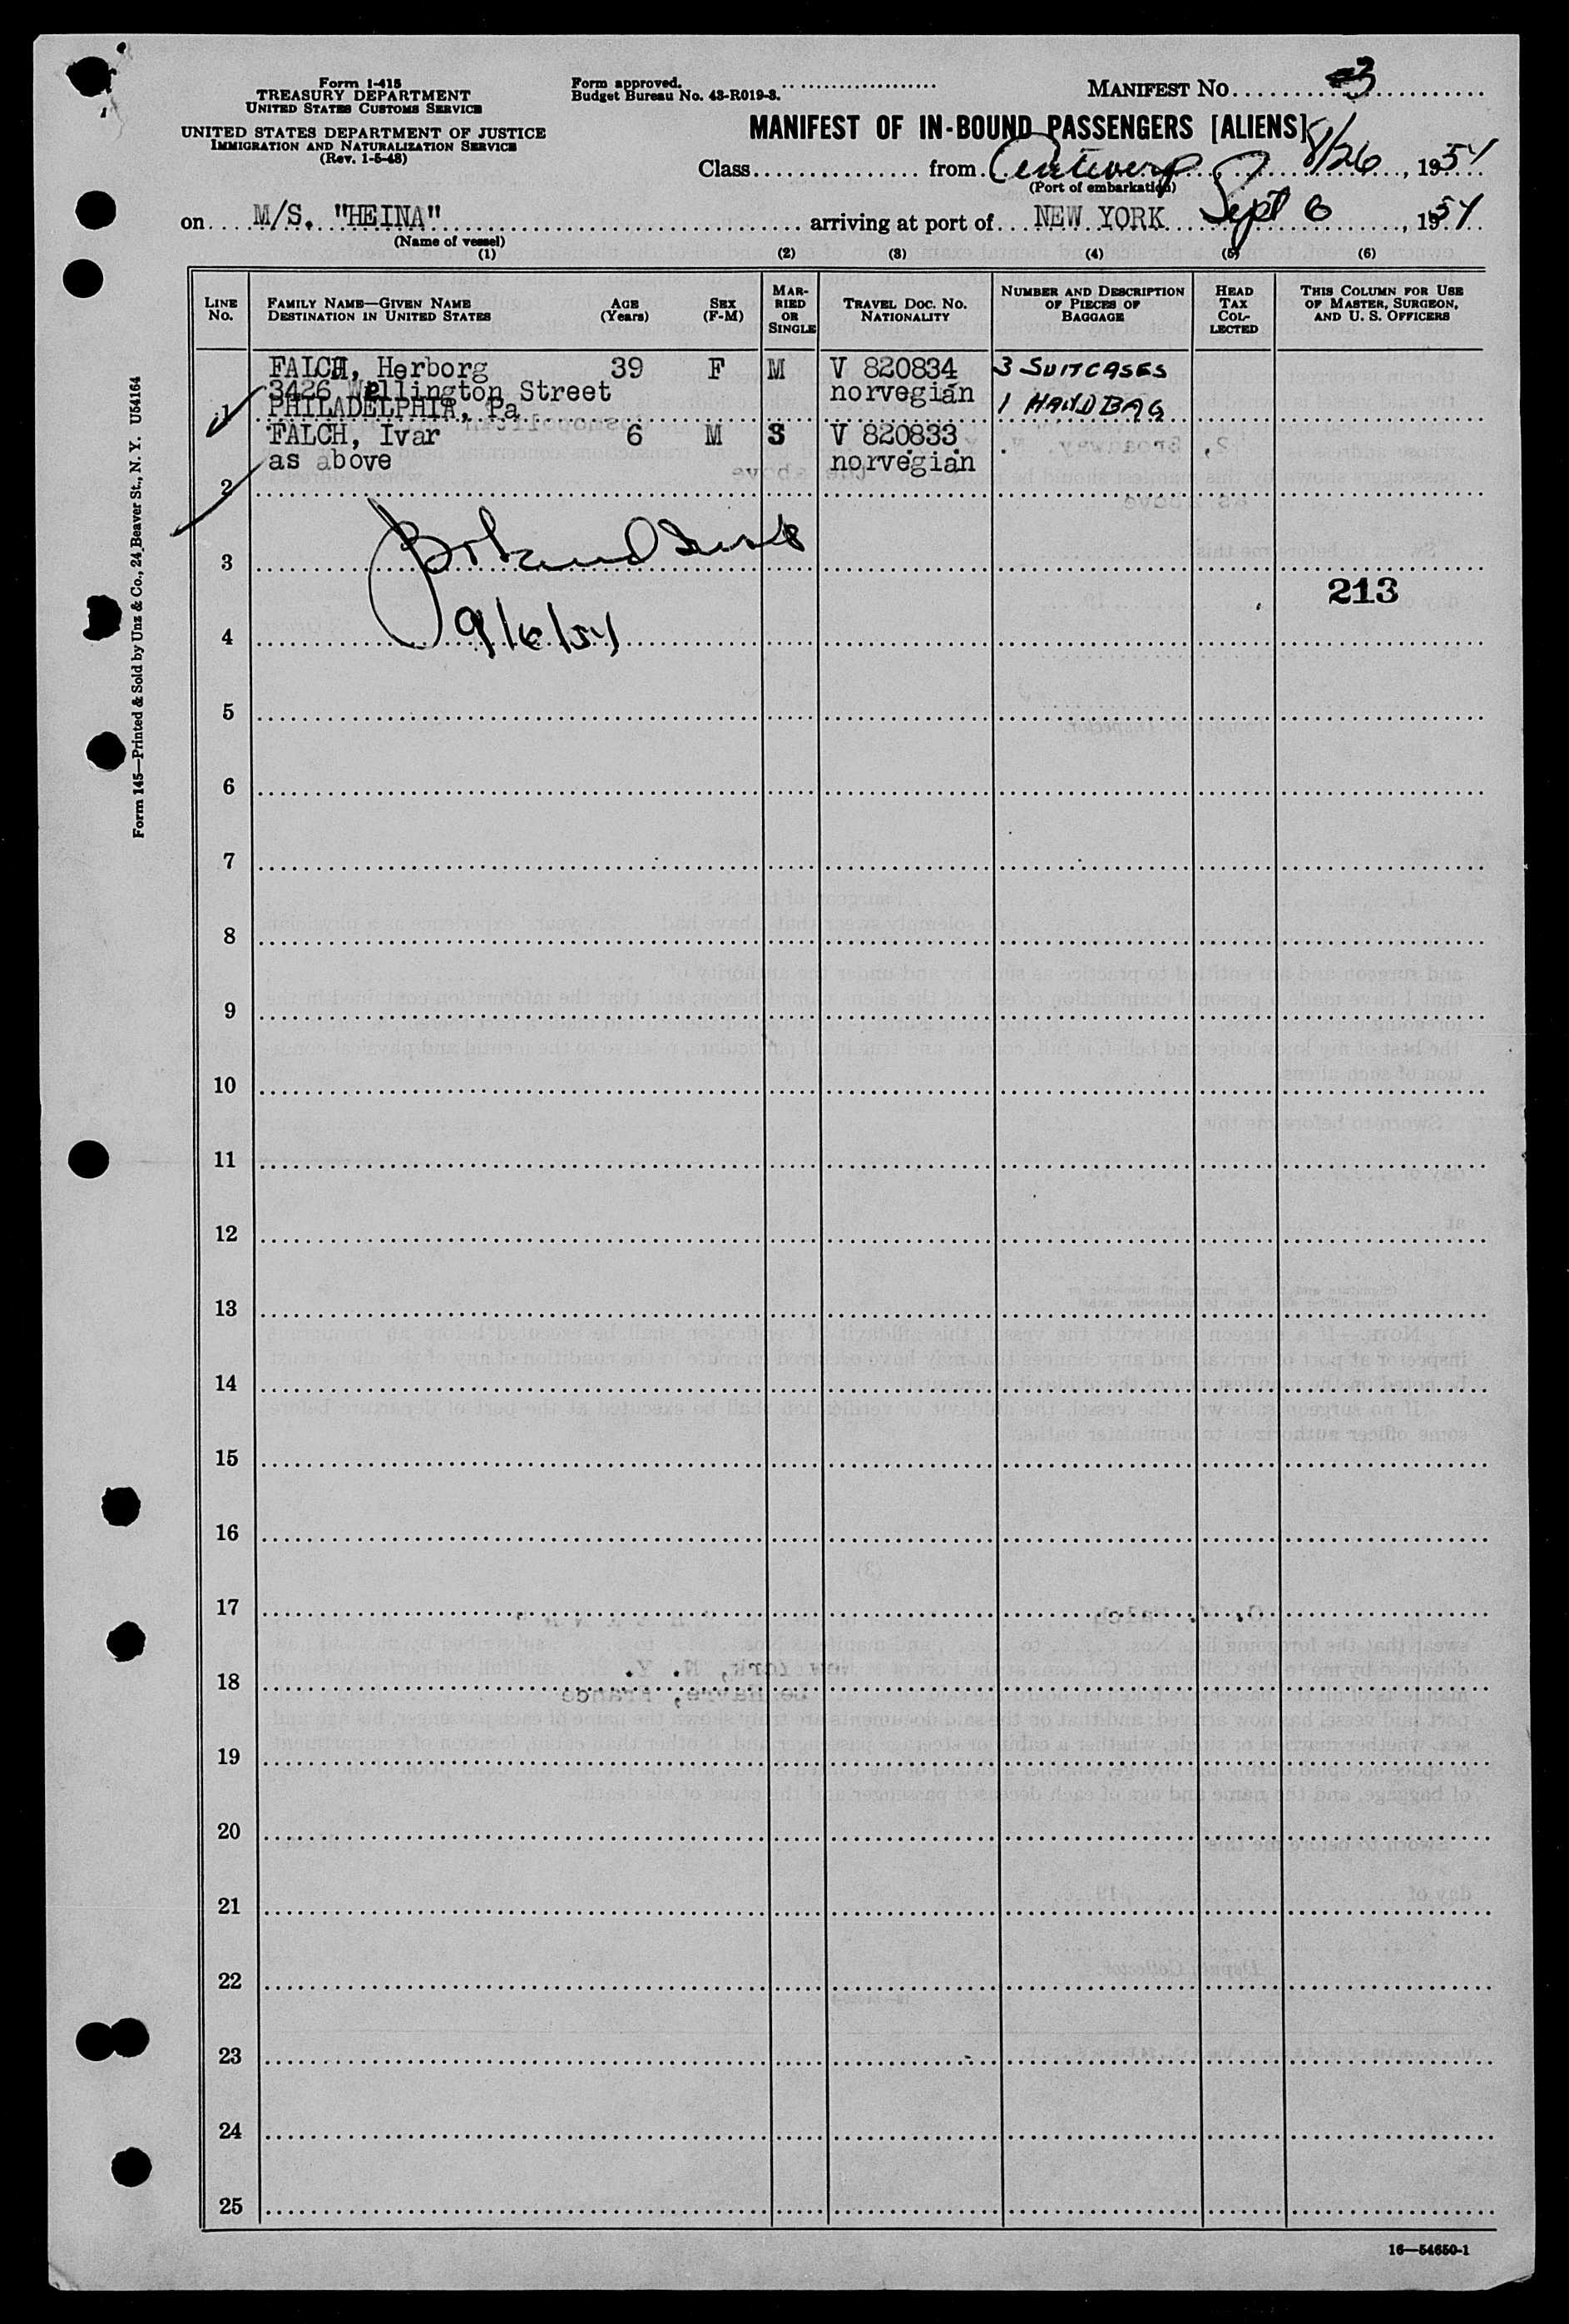 Form I-415
TREASURY DEPARTMENT
UNITED STATES CUSTOMS SERVICE
UNITED STATES DEPARTMENT OF JUSTICE
IMMIGRATION AND NATURALIZATION SERVICE
(Rev. 1-5-48)
Form approved.
Budget Bureau No. 43-R019-3.
MANIFEST NO. 3
MANIFEST OF IN-BOUND PASSENGERS [ALIENS]
Class from Antwerp 8/26, 1954
(Port of embarkation)
on M/S. "HEINA" arriving at port of NEW YORK Sept 6, 1954
(Name of vessel)
(1) (2) (3) (4) (5) (6)
LINE NO. FAMILY NAME—GIVEN NAME DESTINATION IN UNITED STATES AGE (Years) SEX (F-M) MARRIED OR SINGLE TRAVEL DOC. NO. NATIONALITY NUMBER AND DESCRIPTION OF PIECES OF BAGGAGE HEAD TAX COLLECTED THIS COLUMN FOR USE OF MASTER, SURGEON, AND U. S. OFFICERS
FALCH, Herborg 39 F M V 820834 3 SUITCASES
3426 Wellington Street norvegian
1 PHILADELPHIA, Pa 1 HANDBAG
FALCH, Ivar 6 M S V 820833
as above norvegian
2
3
213
9/6/54
4
5
6
7
8
9
10
11
12
13
14
15
16
17
18
19
20
21
22
23
24
25
16—54650-1
Form 145—Printed & Sold by Unz & Co., 24 Beaver St., N. Y. U54164